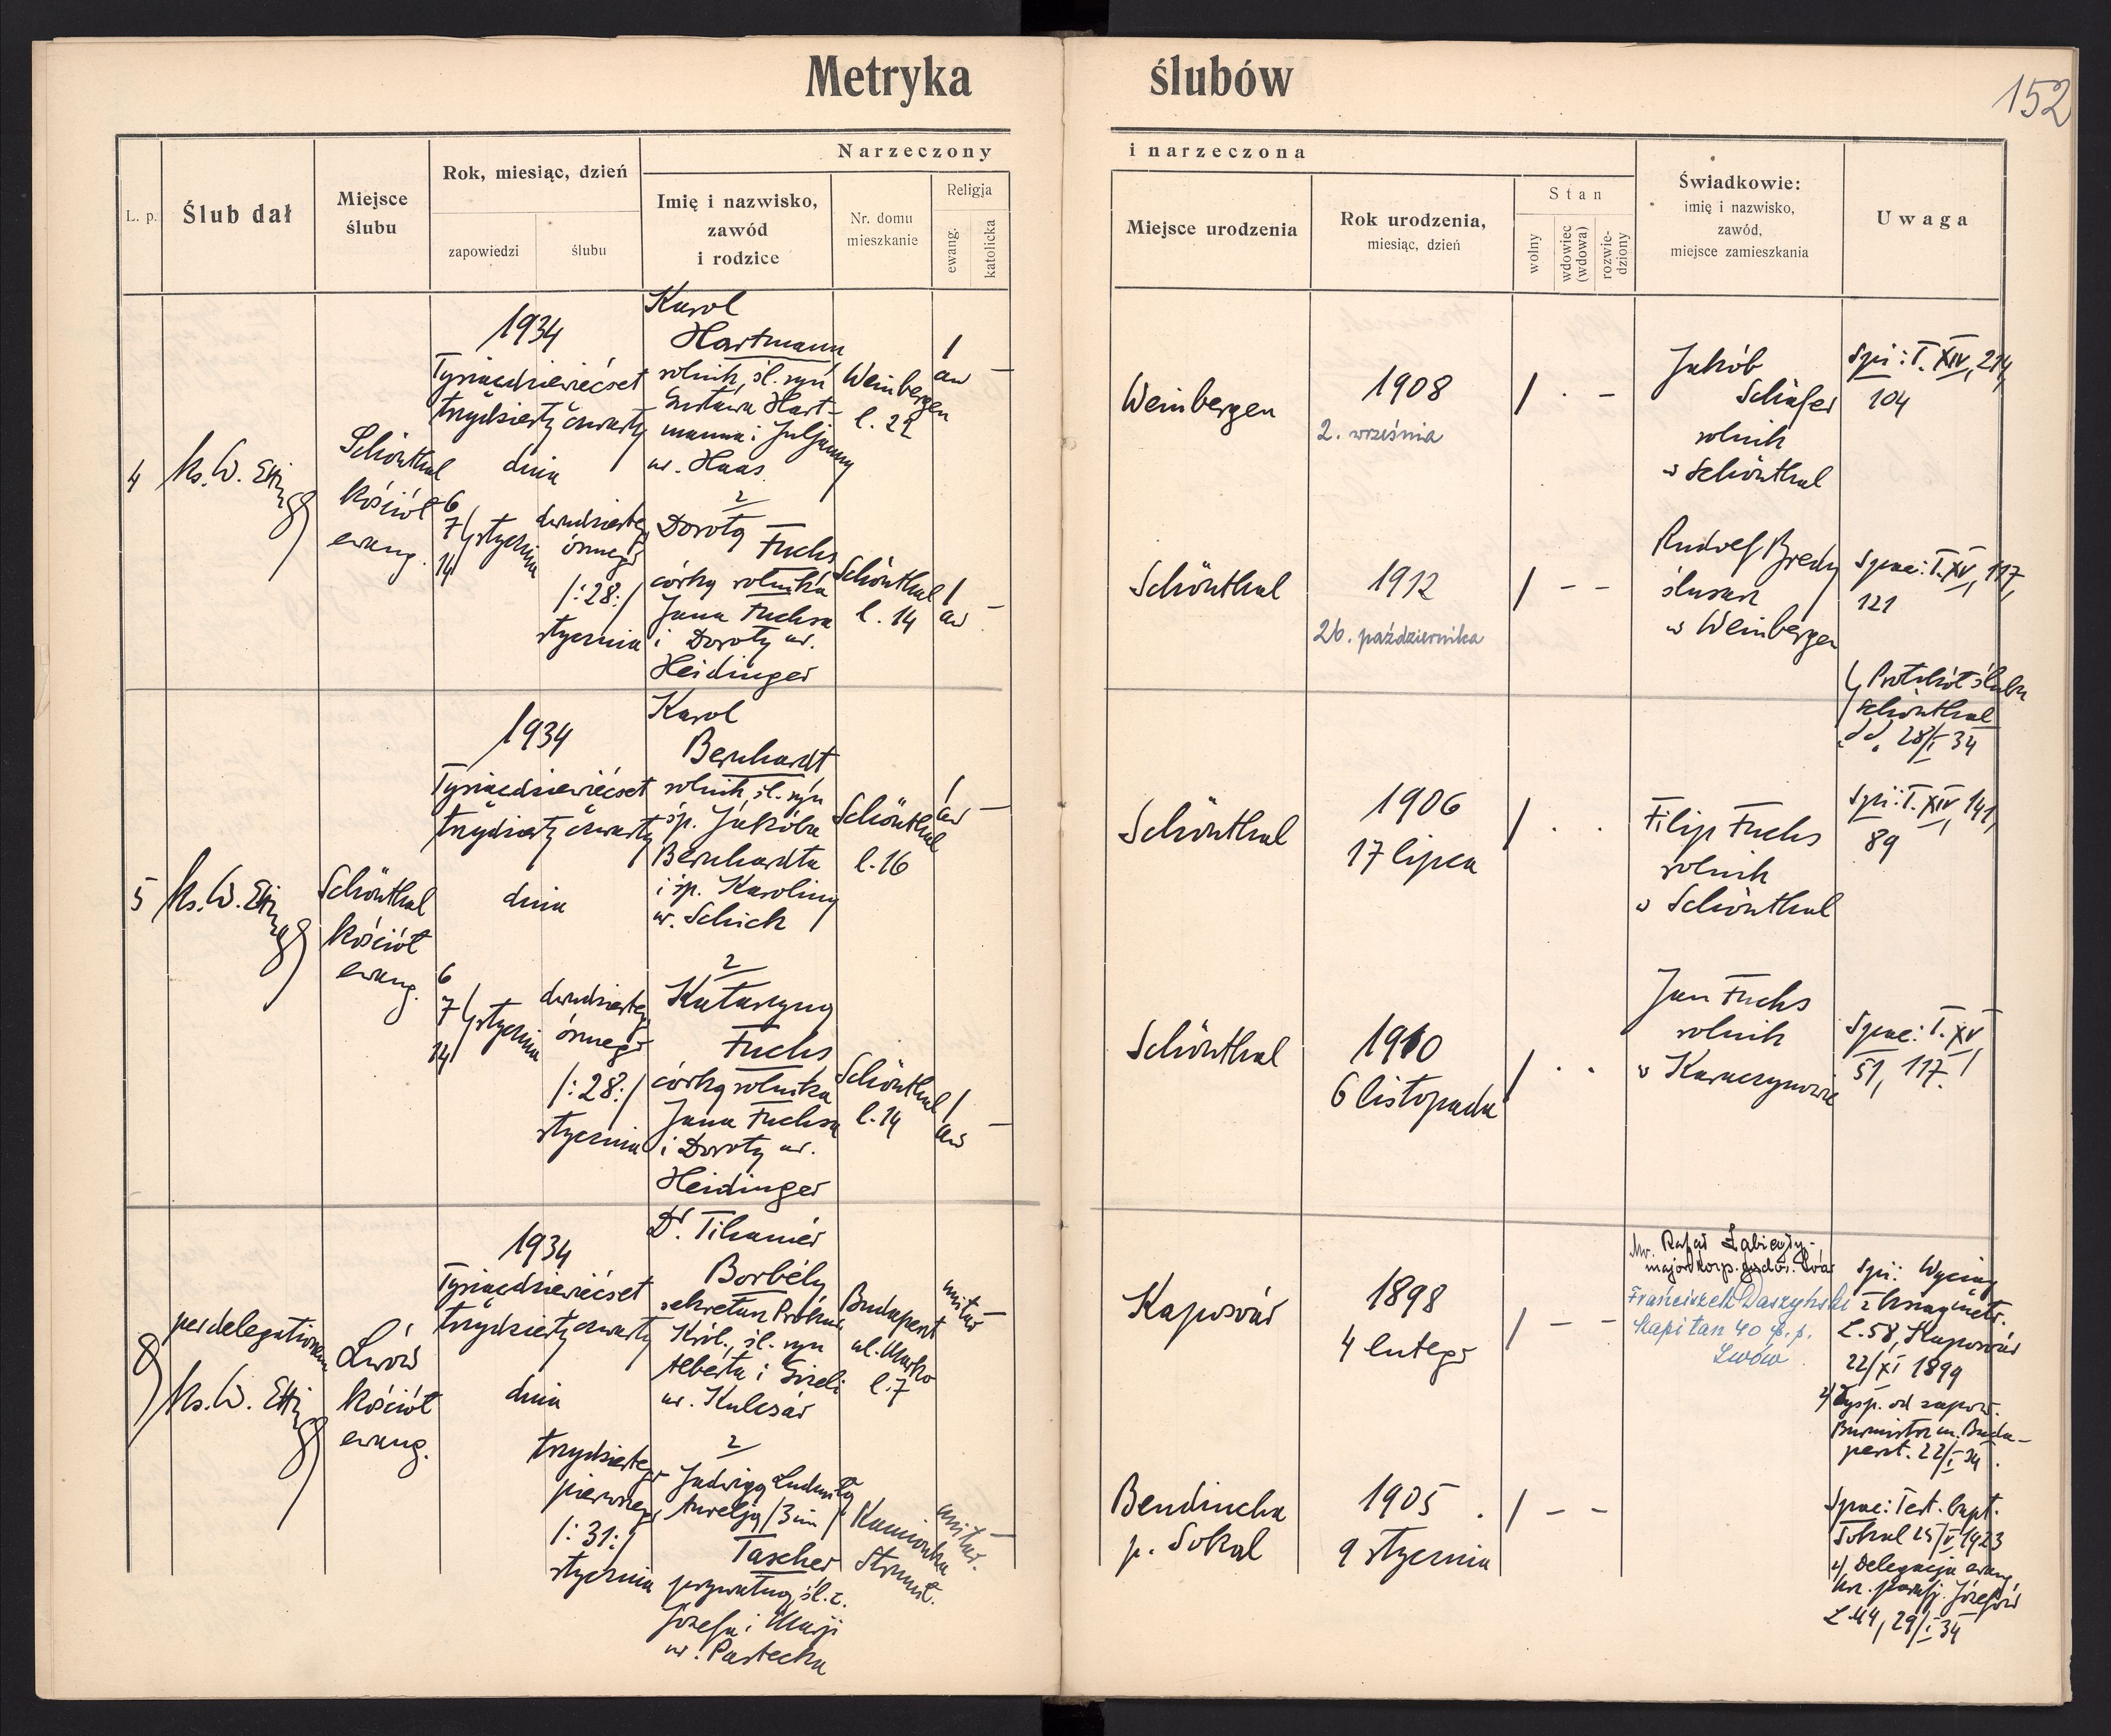 Metryka ślubów
152
Narzeczony i narzeczona
L. p.
Ślub dał
Miejsce
ślubu
Rok, miesiąc, dzień
zapowiedzi
ślubu
Imię i nazwisko,
zawód
i rodzice
Nr. domu
mieszkanie
Religja
ewang.
katolicka
Miejsce urodzenia
Rok urodzenia,
miesiąc, dzień
Stan
wolny
wdowiec
(wdowa)
rozwie-
dziony
Świadkowie:
imię i nazwisko,
zawód,
miejsce zamieszkania
Uwaga
4
ks. W. Ettinger
Schönthal
kościół
ewang.
1934
Tysiącdziewięćset
trzydziesty czwarty
dnia
6
7 stycznia
14
dwudziestego
ósmego
/:28:/
stycznia
Karol
Hartmann
rolnik, śl. syn
Gustawa Hart-
manna i Juljanny
ur. Haas
Weinbergen
l. 22
1
aw –
2
Dorotą
Fuchs
córką rolnika
Jana Fuchsa
i Doroty ur.
Heidinger
Schönthal
l. 14
1
aw –
Weinbergen
1908
2. września
1 . –
Schönthal
1912
26. października
1 – –
Jakób
Schäfer
rolnik
w Schönthal
Rudolf Bredy
ślusarz
w Weinbergen
Spi: T. XIV, 214,
104
Spae: T. XV, 117,
121
Protokół ślubu
Schönthal
dd. 28/I 34
5
ks. W. Ettinger
Schönthal
kościół
ewang.
1934
Tysiącdziewięćset
trzydziesty czwarty
dnia
6
7 stycznia
14
dwudziestego
ósmego
/:28:/
stycznia
Karol
Bernhardt
rolnik, śl. syn
śp. Jakóba
Bernhardta
i śp. Karoliny
ur. Schick
Schönthal
l. 16
1
aw –
2
Katarzyną
Fuchs
córką rolnika
Jana Fuchsa
i Doroty ur.
Heidinger
Schönthal
l. 14
1
aw –
Schönthal
1906
17 lipca
1 . .
Schönthal
1910
6 listopada
1 . .
Filip Fuchs
rolnik
w Schönthal
Jan Fuchs
rolnik
w Karaczynowie
Spi: T. XIV, 141,
89
Spae: T. XV
51, 117.
8
per delegationem
ks. W. Ettinger
Lwów
kościół
ewang.
1934
Tysiącdziewięćset
trzydziesty czwarty
dnia
trzydziestego
pierwszego
/:31:/
stycznia
Dr. Tihamér
Borbély
sekretarz
Król., śl. syn
Alberta i Gizeli
ur. Kulcsár
Budapest
ul. Marko
l. 7
unitar. –
2
Jadwigą Ludmiłą
Aurelją /3 im/
Tascher
prywatną, śl. c.
Józefa i Marji
ur. Pastecka
Kamionka
Strumił.
unitar. –
Kaposvár
1898
4 lutego
1 – –
Bendiucha
p. Sokal
1905
9 stycznia
1 – –
Rafał
major korp. Lwów
Franciszek Daszyński
kapitan 40 p. p.
Lwów
Spi: Wyciąg
z ksiąg metr.
L. 58, Kaposvár
22/XI 1899
2/ Dysp. od zapow.
Burmistrz m. Buda-
peszt. 22/I 34.
Spae: Test. bapt.
Sokal 25/V 1923
2/ Delegacja ewang.
parafj. Józefów
L 44, 29/I 34